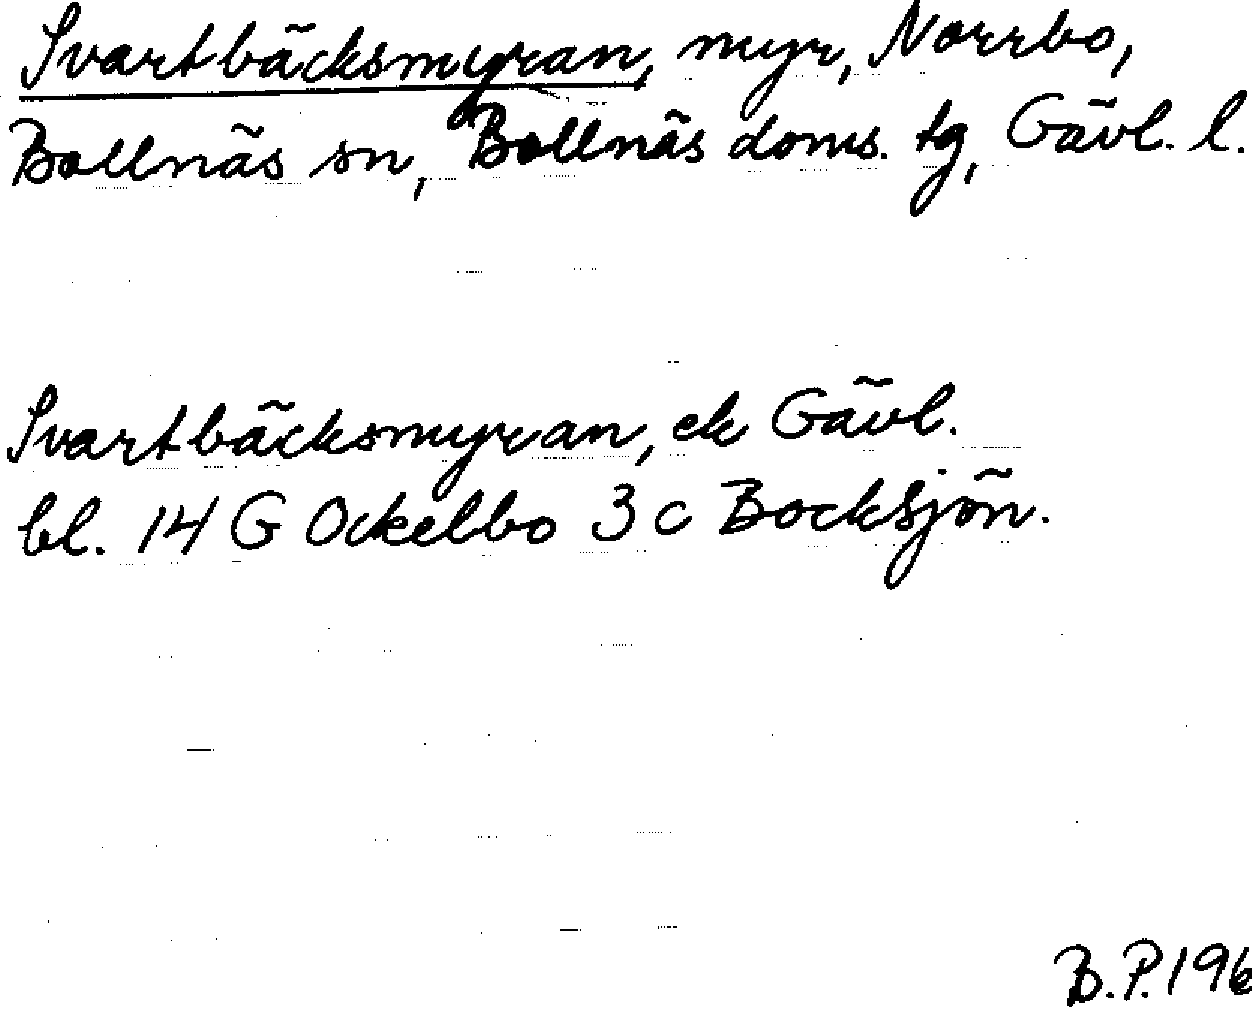 Svartbäcksmyran, myr, Norrbo,
Bollnäs sn, Bollnäs doms. tg, Gävl. l.
Svartbäcksmyran, ek Gävl.
bl. 14 G Ockelbo 3 c Bocksjön.
B.P. 196